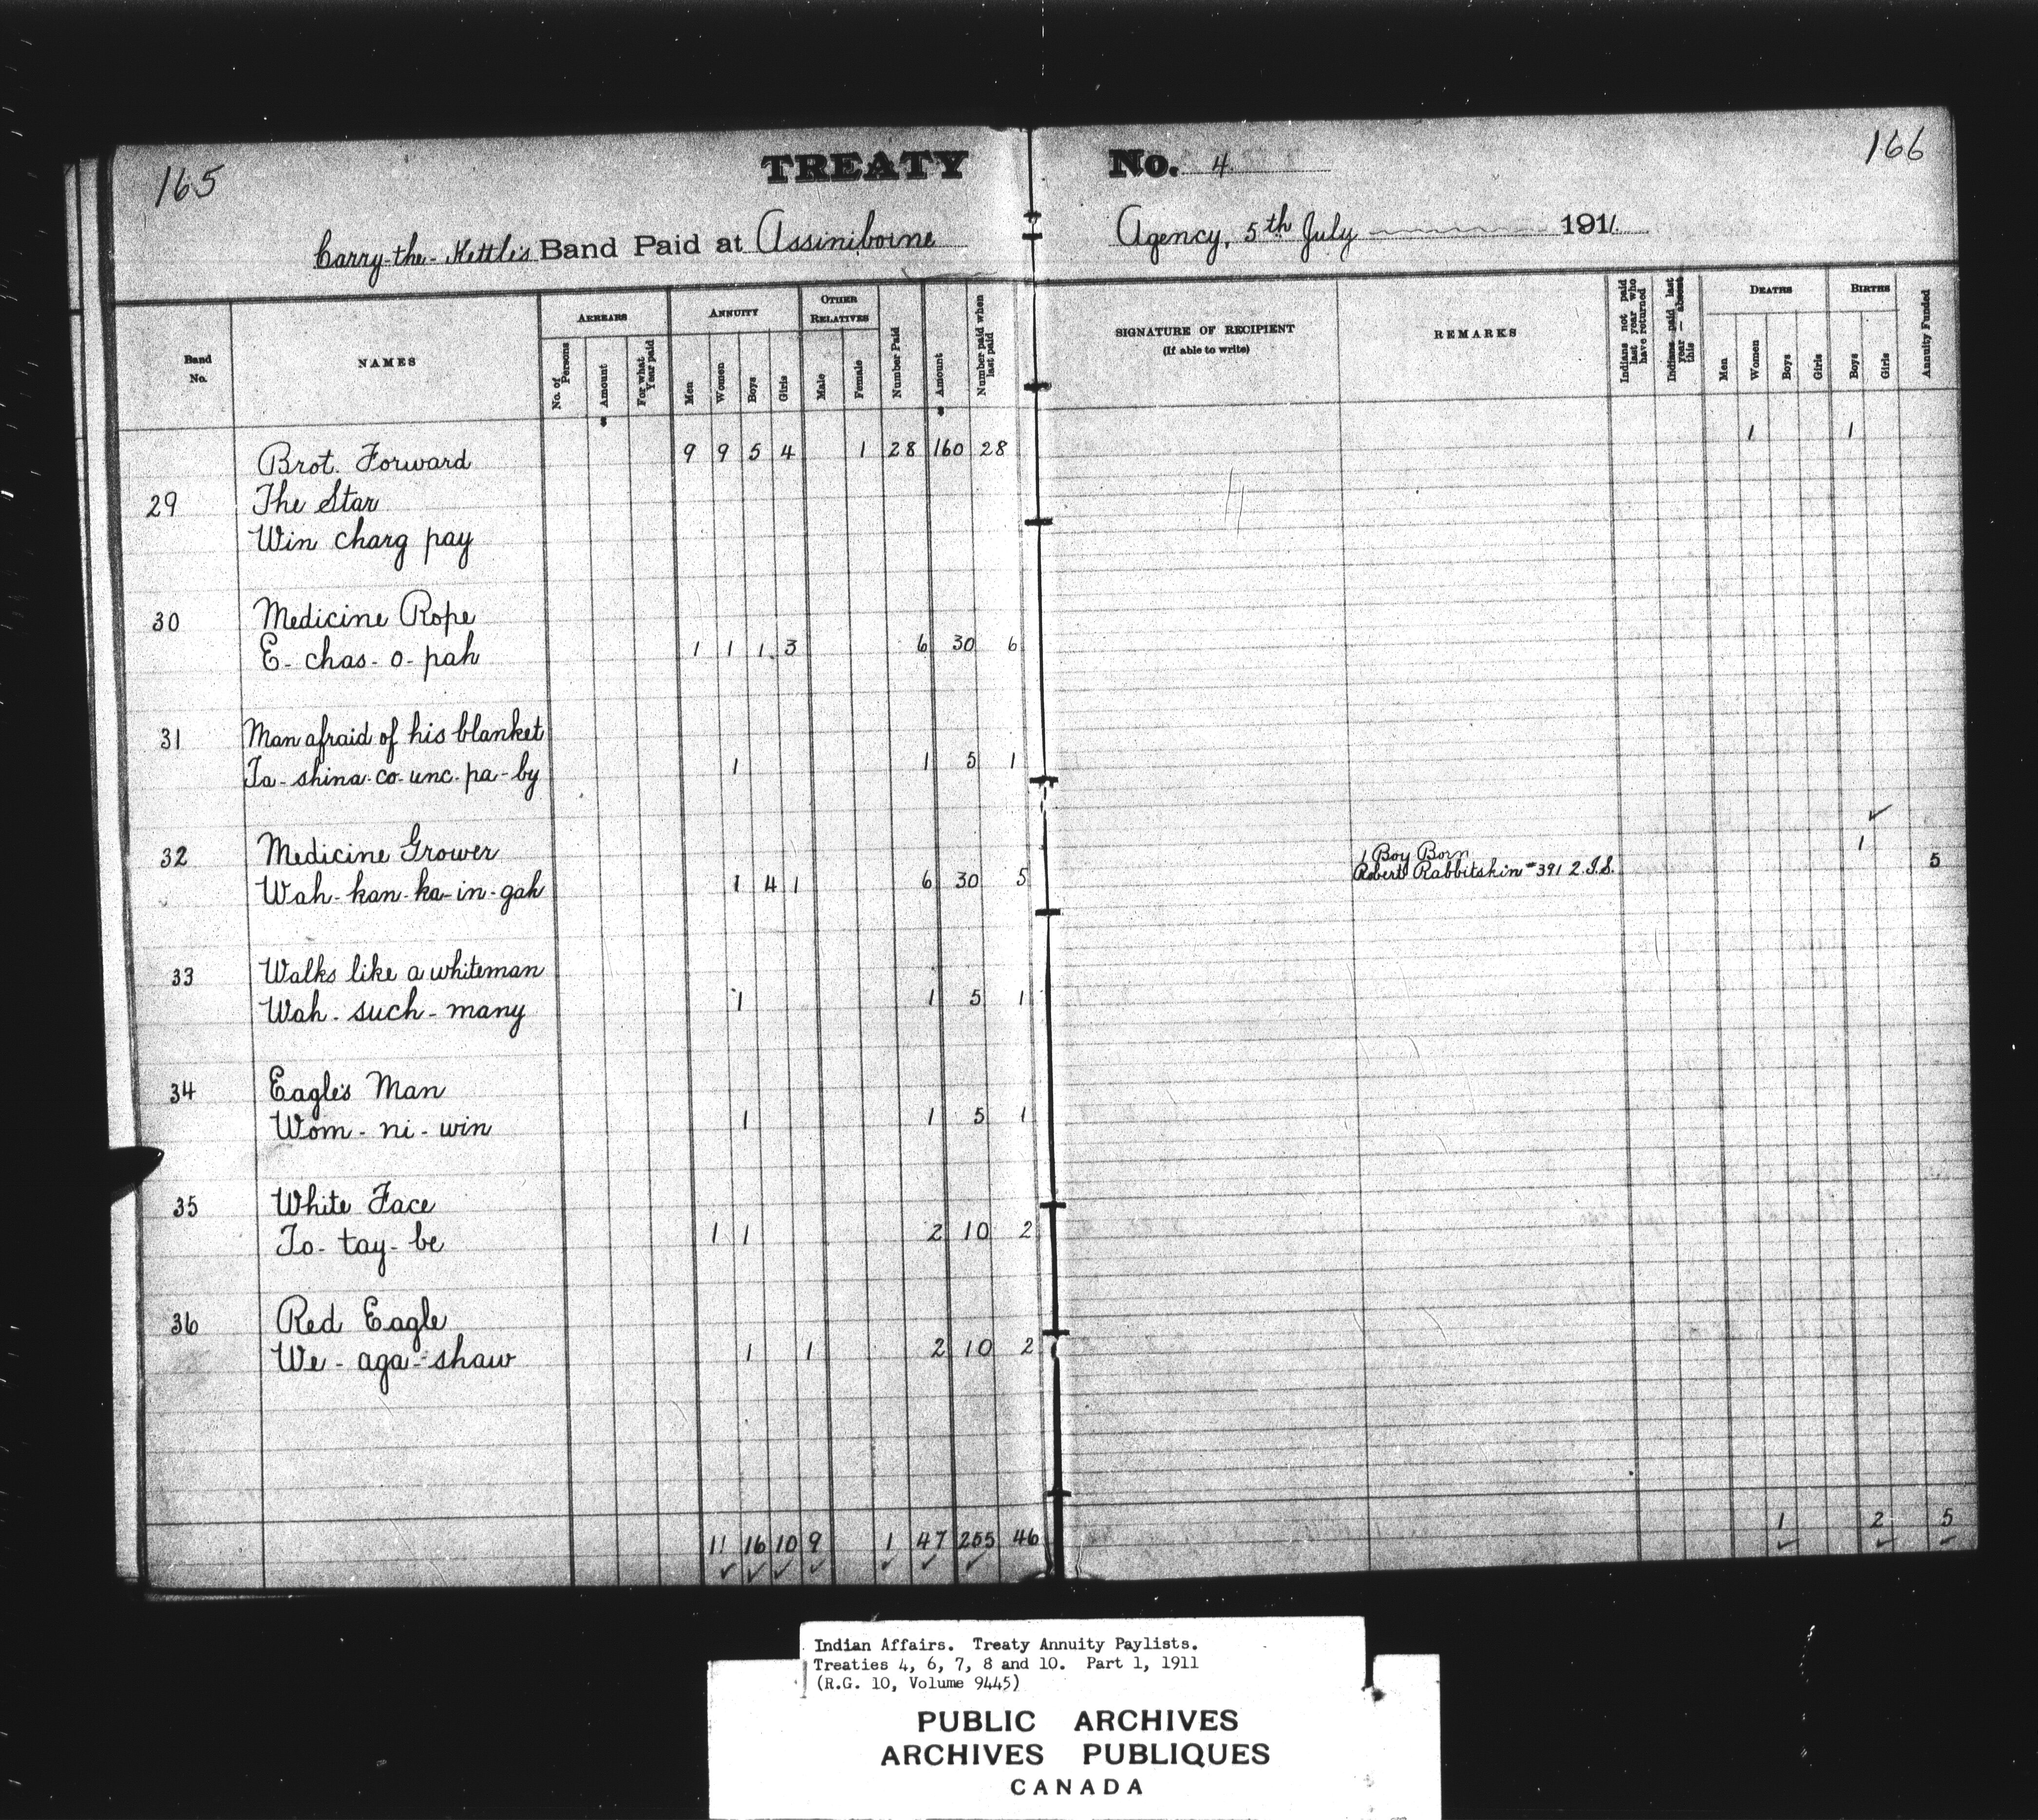 165
TREATY No. 4
166
Carry-the-Kettle's Band Paid at Assiniboine Agency, 5th July 1911.
Band No.
NAMES
ARREARS
No. of Persons
Amount
For what Year paid
ANNUITY
Men
Women
Boys
Girls
OTHER RELATIVES
Male
Female
Number Paid
Amount
Number paid when last paid
SIGNATURE OF RECIPIENT
(If able to write)
REMARKS
Indians not paid last year who have returned
Indians paid last year — absent this
DEATHS
Men
Women
Boys
Girls
BIRTHS
Boys
Girls
Annuity Funded
Brot. Forward 9 9 5 4 1 28 160 28 1 1
29 The Star
Win charg pay
30 Medicine Rope
E-chas-o-pah 1 1 1 3 6 30 6
31 Man afraid of his blanket
Ta-shina-co-unc-pa-by 1 1 5 1
32 Medicine Grower 1 Boy Born 1
Wah-kan-ka-in-gah 1 4 1 6 30 5 Robert Rabbitskin #391 2.I.S. 5
33 Walks like a whiteman
Wah-such-many 1 1 5 1
34 Eagle's Man
Wom-ni-win 1 1 5 1
35 White Face
To-tay-be 1 1 2 10 2
36 Red Eagle
We-aga-shaw 1 1 2 10 2
11 16 10 9 1 47 255 46 1 2 5
Indian Affairs. Treaty Annuity Paylists.
Treaties 4, 6, 7, 8 and 10. Part 1, 1911
(R.G. 10, Volume 9445)
PUBLIC ARCHIVES
ARCHIVES PUBLIQUES
CANADA